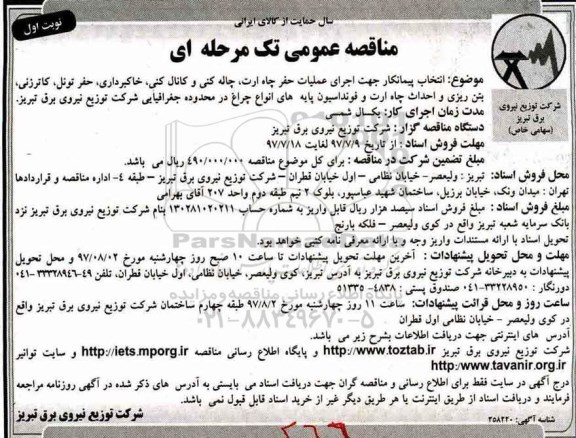 سال حمایت از کالای ایرانی
نوبت اول
مناقصه عمومی تک مرحله ای
شرکت توزیع نیروی
برق تبریز
(سهامی خاص)
موضوع: انتخاب پیمانکار جهت اجرای عملیات حفر چاه ارت، چاله کنی و کانال کنی، خاکبرداری، حفر تونل، کاترزنی،
بتن ریزی و احداث چاه ارت و فونداسیون پایه های انواع چراغ در محدوده جغرافیایی شرکت توزیع نیروی برق تبریز.
مدت زمان اجرای کار: یکسال شمسی
دستگاه مناقصه گزار : شرکت توزیع نیروی برق تبریز
مهلت فروش اسناد : از تاریخ ۹۷/۷/۹ لغایت ۹۷/۷/۱۸
مبلغ تضمین شرکت در مناقصه : برای کل موضوع مناقصه ۴۹۰/۰۰۰/۰۰۰ ریال می باشد.
محل فروش اسناد: تبریز : ولیعصر- خیابان نظامی – اول خیابان قطران – شرکت توزیع نیروی برق تبریز – طبقه ۴- اداره مناقصه و قراردادها
تهران : میدان ونک، خیابان برزیل، ساختمان شهید عباسپور، بلوک ۲ نیم طبقه دوم واحد ۲۰۷ آقای بهرامی
مبلغ فروش اسناد : مبلغ فروش اسناد سیصد هزار ریال قابل واریز به شماره حساب ۱۳۰۲۸۱۰۲۰۲۱۱ بنام شرکت توزیع نیروی برق تبریز نزد
بانک سرمایه شعبه تبریز واقع در کوی ولیعصر – فلکه بارنج
تحویل اسناد با ارائه مستندات واریز وجه و با ارائه معرفی نامه کتبی خواهد بود.
مهلت و محل تحویل پیشنهادات : آخرین مهلت تحویل پیشنهادات تا ساعت ۱۰ صبح روز چهارشنبه مورخ ۹۷/۰۸/۰۲ و محل تحویل
پیشنهادات به دبیرخانه شرکت توزیع نیروی برق تبریز به آدرس تبریز، کوی ولیعصر، خیابان نظامی، اول خیابان قطران، تلفن ۴۹-۳۳۳۲۸۹۴۶-۰۴۱
دورنگار : ۳۳۲۲۸۹۵۰-۰۴۱ صندوق پستی : ۴۸۳۸- ۵۱۳۳۵
ساعت روز و محل قرائت پیشنهادات: ساعت ۱۱ روز چهارشنبه مورخ ۹۷/۸/۲ طبقه چهارم ساختمان شرکت توزیع نیروی برق تبریز واقع
در کوی ولیعصر - خیابان نظامی اول قطران
آدرس های اینترنتی جهت دریافت اطلاعات بشرح زیر می باشد.
شرکت توزیع نیروی برق تبریز http://www.toztab.ir و پایگاه اطلاع رسانی مناقصه http://iets.mporg.ir و سایت توانیر
http://www.tavanir.org.ir
درج آگهی در سایت فقط برای اطلاع رسانی و مناقصه گران جهت دریافت اسناد می بایستی به آدرس های ذکر شده در آگهی روزنامه مراجعه
فرمایند و دریافت اسناد از طریق اینترنت یا هر طریق دیگر غیر از خرید اسناد قابل قبول نمی باشد.
شناسه آگهی: ۲۵۸۲۲۰
شرکت توزیع نیروی برق تبریز